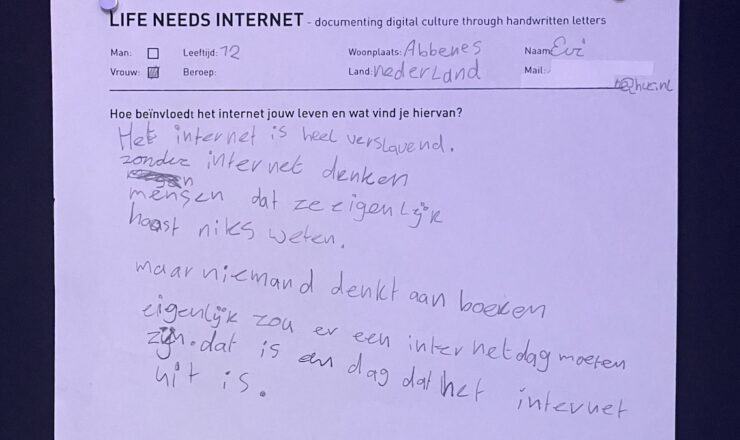 LIFE NEEDS INTERNET - documenting digital culture through handwritten letters
Man: Leeftijd: 12 Woonplaats: Abbenes Naam: Evi
Vrouw: Beroep: Land: nederland Mail:
@hur.nl
Hoe beïnvloedt het internet jouw leven en wat vind je hiervan?
Het internet is heel verslavend.
zonder internet denken
mensen dat ze eigenlijk
haast niks weten.
maar niemand denkt aan boeken
eigenlijk zou er een internetdag moeten
zijn. dat is en dag dat het internet
uit is.